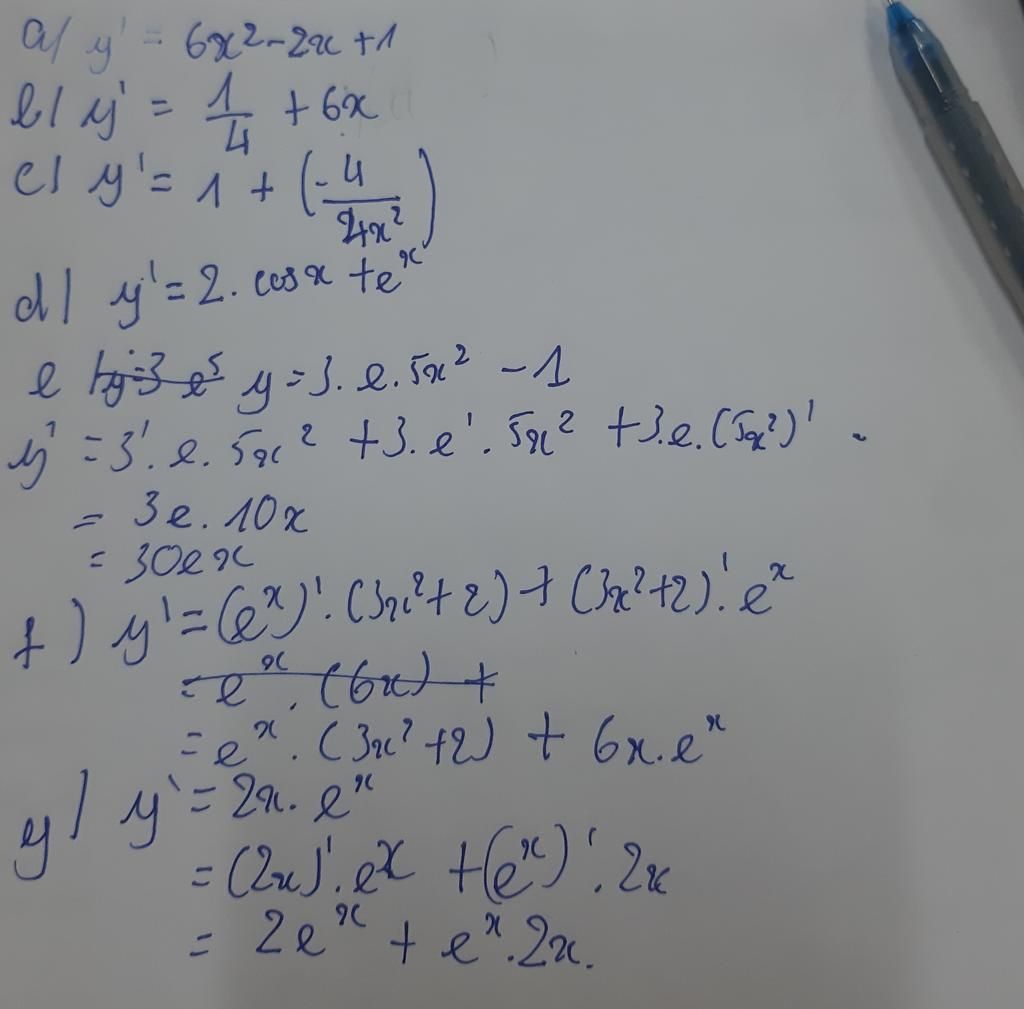 a/ y' = 6x² - 2x + 1
b/ y' = 1/4 + 6x
c/ y' = 1 + (-4/4x²)
d/ y' = 2. cosx + eˣ
e y = 3. e. 5x² - 1
y' = 3'. e. 5x² + 3. e'. 5x² + 3. e. (5x²)'
= 3e. 10x
= 30ex
f) y' = (eˣ)'. (3x² + 2) + (3x² + 2)'. eˣ
= eˣ. (6x) +
= eˣ. (3x² + 2) + 6x. eˣ
y/ y' = 2x. eˣ
= (2x)'. eˣ + (eˣ)'. 2x
= 2eˣ + eˣ. 2x.